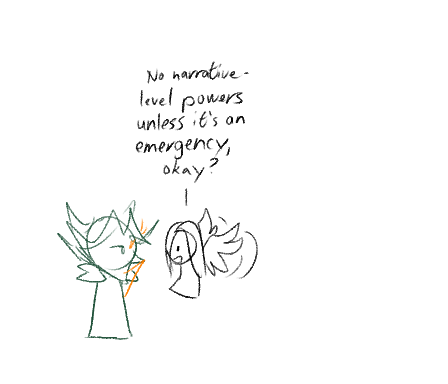 No narrative-
level powers
unless it's an
emergency,
okay?